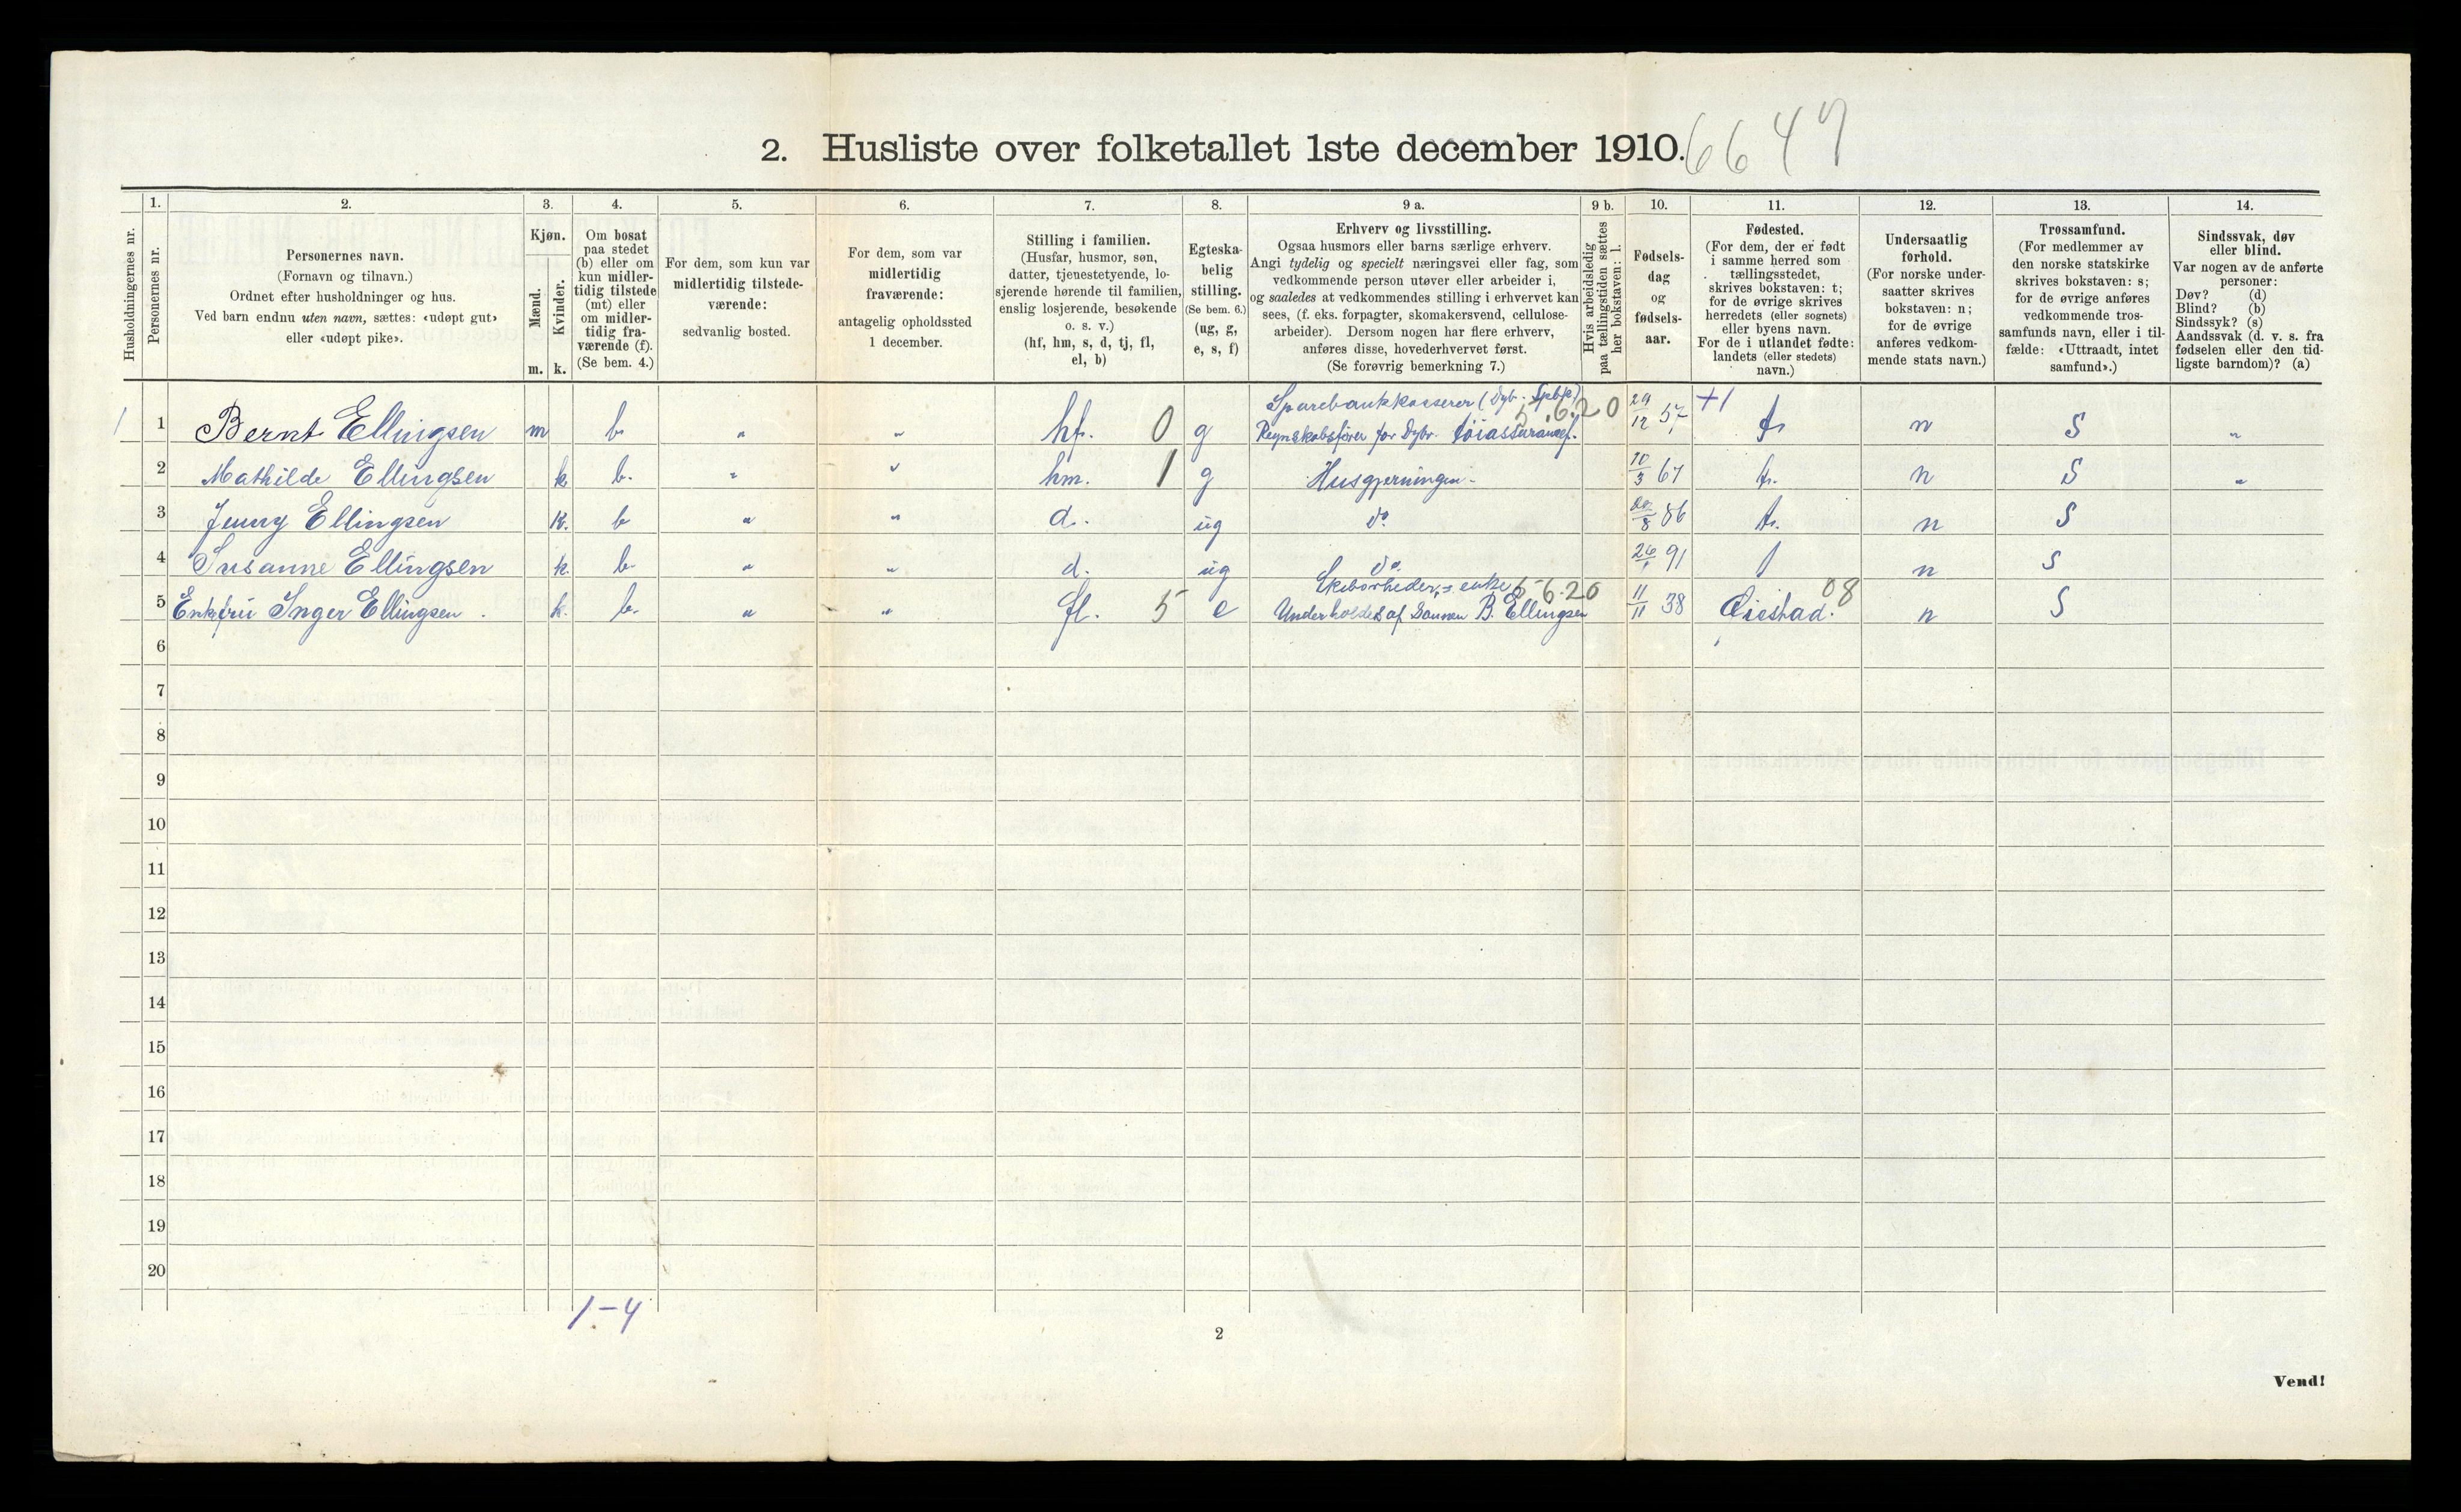 2. Husliste over folketallet 1ste december 1910. 6647
Husholdningernes nr.
1.
Personernes nr.
2.
Personernes navn.
(Fornavn og tilnavn.)
Ordnet efter husholdninger og hus.
Ved barn endnu uten navn, sættes: «udøpt gut»
eller «udøpt pike».
3.
Kjøn.
Mænd.
Kvinder.
m. k.
4.
Om bosat
paa stedet
(b) eller om
kun midler-
tidig tilstede
(mt) eller
om midler-
tidig fra-
værende (f).
(Se bem. 4.)
5.
For dem, som kun var
midlertidig tilstede-
værende:
sedvanlig bosted.
6.
For dem, som var
midlertidig
fraværende:
antagelig opholdssted
1 december.
7.
Stilling i familien.
(Husfar, husmor, søn,
datter, tjenestetyende, lo-
sjerende hørende til familien,
enslig losjerende, besøkende
o. s. v.)
(hf, hm, s, d, tj, fl,
el, b)
8.
Egteska-
belig
stilling.
(Se bem. 6.)
(ug, g,
e, s, f)
9 a.
Erhverv og livsstilling.
Ogsaa husmors eller barns særlige erhverv.
Angi tydelig og specielt næringsvei eller fag, som
vedkommende person utøver eller arbeider i,
og saaledes at vedkommendes stilling i erhvervet kan
sees, (f. eks. forpagter, skomakersvend, cellulose-
arbeider). Dersom nogen har flere erhverv,
anføres disse, hovederhvervet først.
(Se forøvrig bemerkning 7.)
9 b.
Hvis arbeidsledig
paa tællingstiden sættes
her bokstaven: l.
10.
Fødsels-
dag
og
fødsels-
aar.
11.
Fødested.
(For dem, der er født
i samme herred som
tællingsstedet,
skrives bokstaven: t;
for de øvrige skrives
herredets (eller sognets)
eller byens navn.
For de i utlandet fødte:
landets (eller stedets)
navn.)
12.
Undersaatlig
forhold.
(For norske under-
saatter skrives
bokstaven: n;
for de øvrige
anføres vedkom-
mende stats navn.)
13.
Trossamfund.
(For medlemmer av
den norske statskirke
skrives bokstaven: s;
for de øvrige anføres
vedkommende tros-
samfunds navn, eller i til-
fælde: «Uttraadt, intet
samfund».)
14.
Sindssvak, døv
eller blind.
Var nogen av de anførte
personer:
Døv? (d)
Blind? (b)
Sindssyk? (s)
Aandssvak (d. v. s. fra
fødselen eller den tid-
ligste barndom)? (a)
Sparebankkasserer (Dyb. Spbk) 5.6.20
1 1 Bernt Ellingsen m b. " " hf. 0 g Regnskabsfører for Dybv. Søiassurancef. 29/12 57 +1 t. n S "
2 Mathilde Ellingsen k b. " " hm. 1 g Husgjerningen. 10/3 67 t. n S "
3 Jenny Ellingsen k. b " " d. ug do 86 t. n S
4 Susanne Ellingsen k. b. " " d. ug do 91 n S
Skibsrheder,s enke 5-6.20
5 Enkefru Inger Ellingsen. k. b. " " fl. 5 e Underholdes af Sønnen B. Ellingsen 11/11 38 Øiestad. 08 n S
6
7
8
9
10
11
12
13
14
15
16
17
18
19
20
1-4
2
Vend!